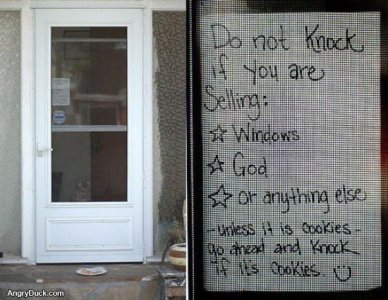 Do not Knock
if you are
Selling:
☆ Windows
☆ God
☆ or anything else
-unless it is cookies-
go ahead and Knock
if it's cookies. ☺
AngryDuck.com